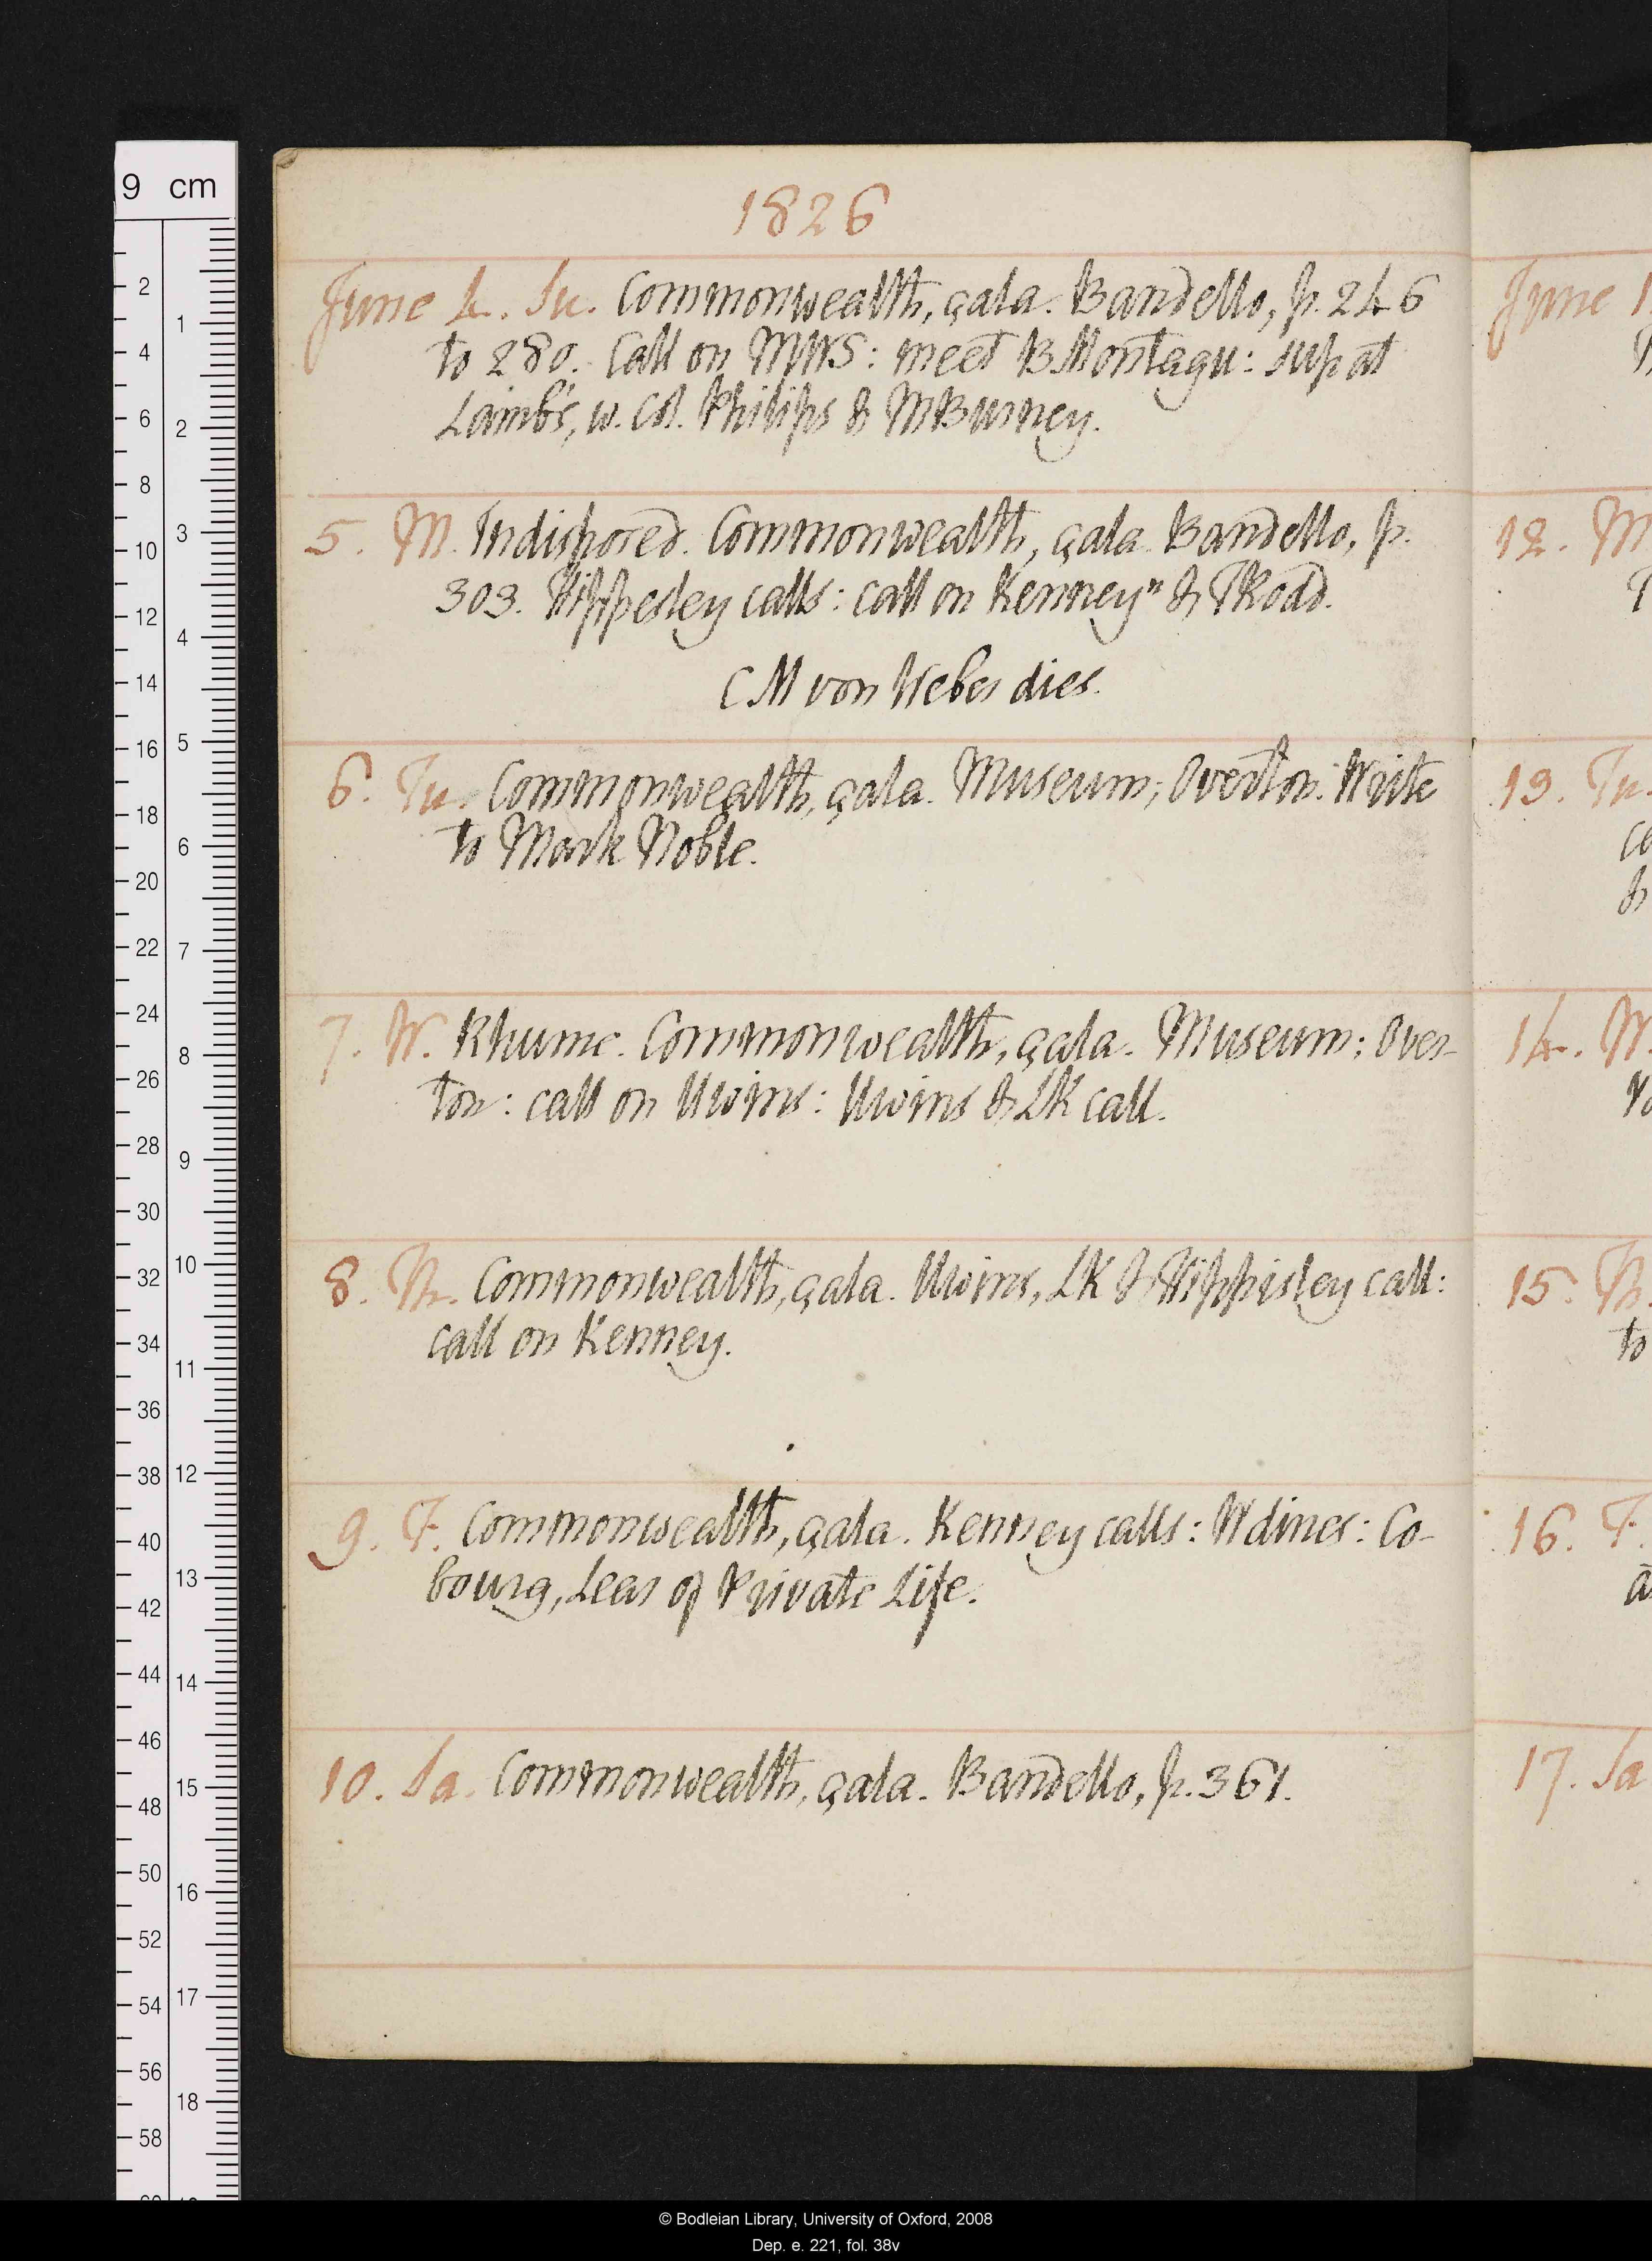 1826
June 4. Su. Commonwealth, çala. Bandello, p. 246
to 280. Call on MWS: meet B Montagu: sup at
Lamb's, w. Col. Philips & MBurney.
5. M. Indisposed. Commonwealth, çala. Bandello, p.
303. Hippesley calls: call on Kenney n & TRodd.
C M von Weber dies.
6. Tu. Commonwealth, çala. Museum; Overton. Write
to Mark Noble.
7. W. Rhume. Commonwealth, çala. Museum; Over-
ton: call on Uwins: Uwins & LK call.
8. Th. Commonwealth, çala. Uwins, LK & Hippisley call:
call on Kenney.
9. F. Commonwealth, çala. Kenney calls: W dines: Co-
bourg, Lear of Private Life.
10. Sa. Commonwealth, çala. Bandello, p. 361.
June 1
12. M
13. Tu.
co
&
14. W.
15. Th.
to
16. F.
a
17. Sa
9 cm
2 4 6 8 10 12 14 16 18 20 22 24 26 28 30 32 34 36 38 40 42 44 46 48 50 52 54 56 58
1 2 3 4 5 6 7 8 9 10 11 12 13 14 15 16 17 18
© Bodleian Library, University of Oxford, 2008
Dep. e. 221, fol. 38v